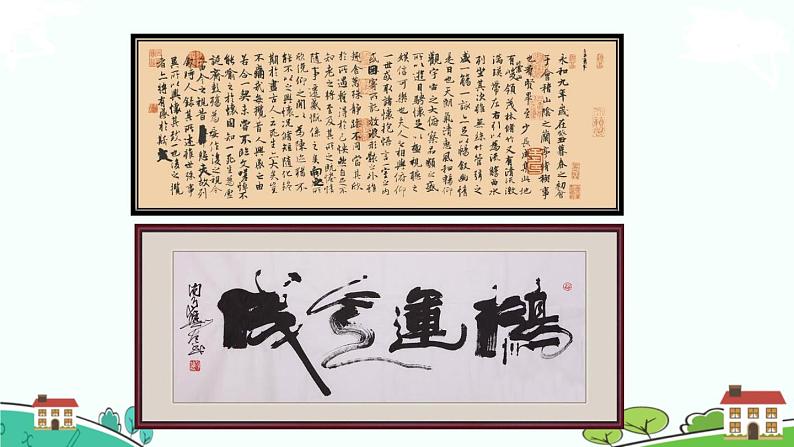 永和九年歲在癸丑暮春之初會
于會稽山陰之蘭亭脩禊事
也羣賢畢至少長咸集此地
有峻領茂林脩竹又有清流激
湍暎帶左右引以為流觴曲水
列坐其次雖無絲竹管弦之
盛一觴一詠亦足以暢叙幽情
是日也天朗氣清惠風和暢仰
觀宇宙之大俯察品類之盛
所以遊目騁懷足以極視聽之
娛信可樂也夫人之相與俯仰
一世或取諸懷抱悟言一室之內
或因寄所託放浪形骸之外雖
趣舍萬殊靜躁不同當其欣
於所遇蹔得於己怏然自足不
知老之將至及其所之既惓情
隨事遷感慨係之矣向之所
欣俛仰之間以為陳迹猶不
能不以之興懷況脩短隨化終
期於盡古人云死生亦大矣豈
不痛哉每攬昔人興感之由
若合一契未嘗不臨文嗟悼不
能喻之於懷固知一死生為虛
誕齊彭殤為妄作後之視今
亦由今之視昔悲夫故列
叙時人錄其所述雖世殊事
異所以興懷其致一也後之攬
者亦將有感於斯文
鴻運天成